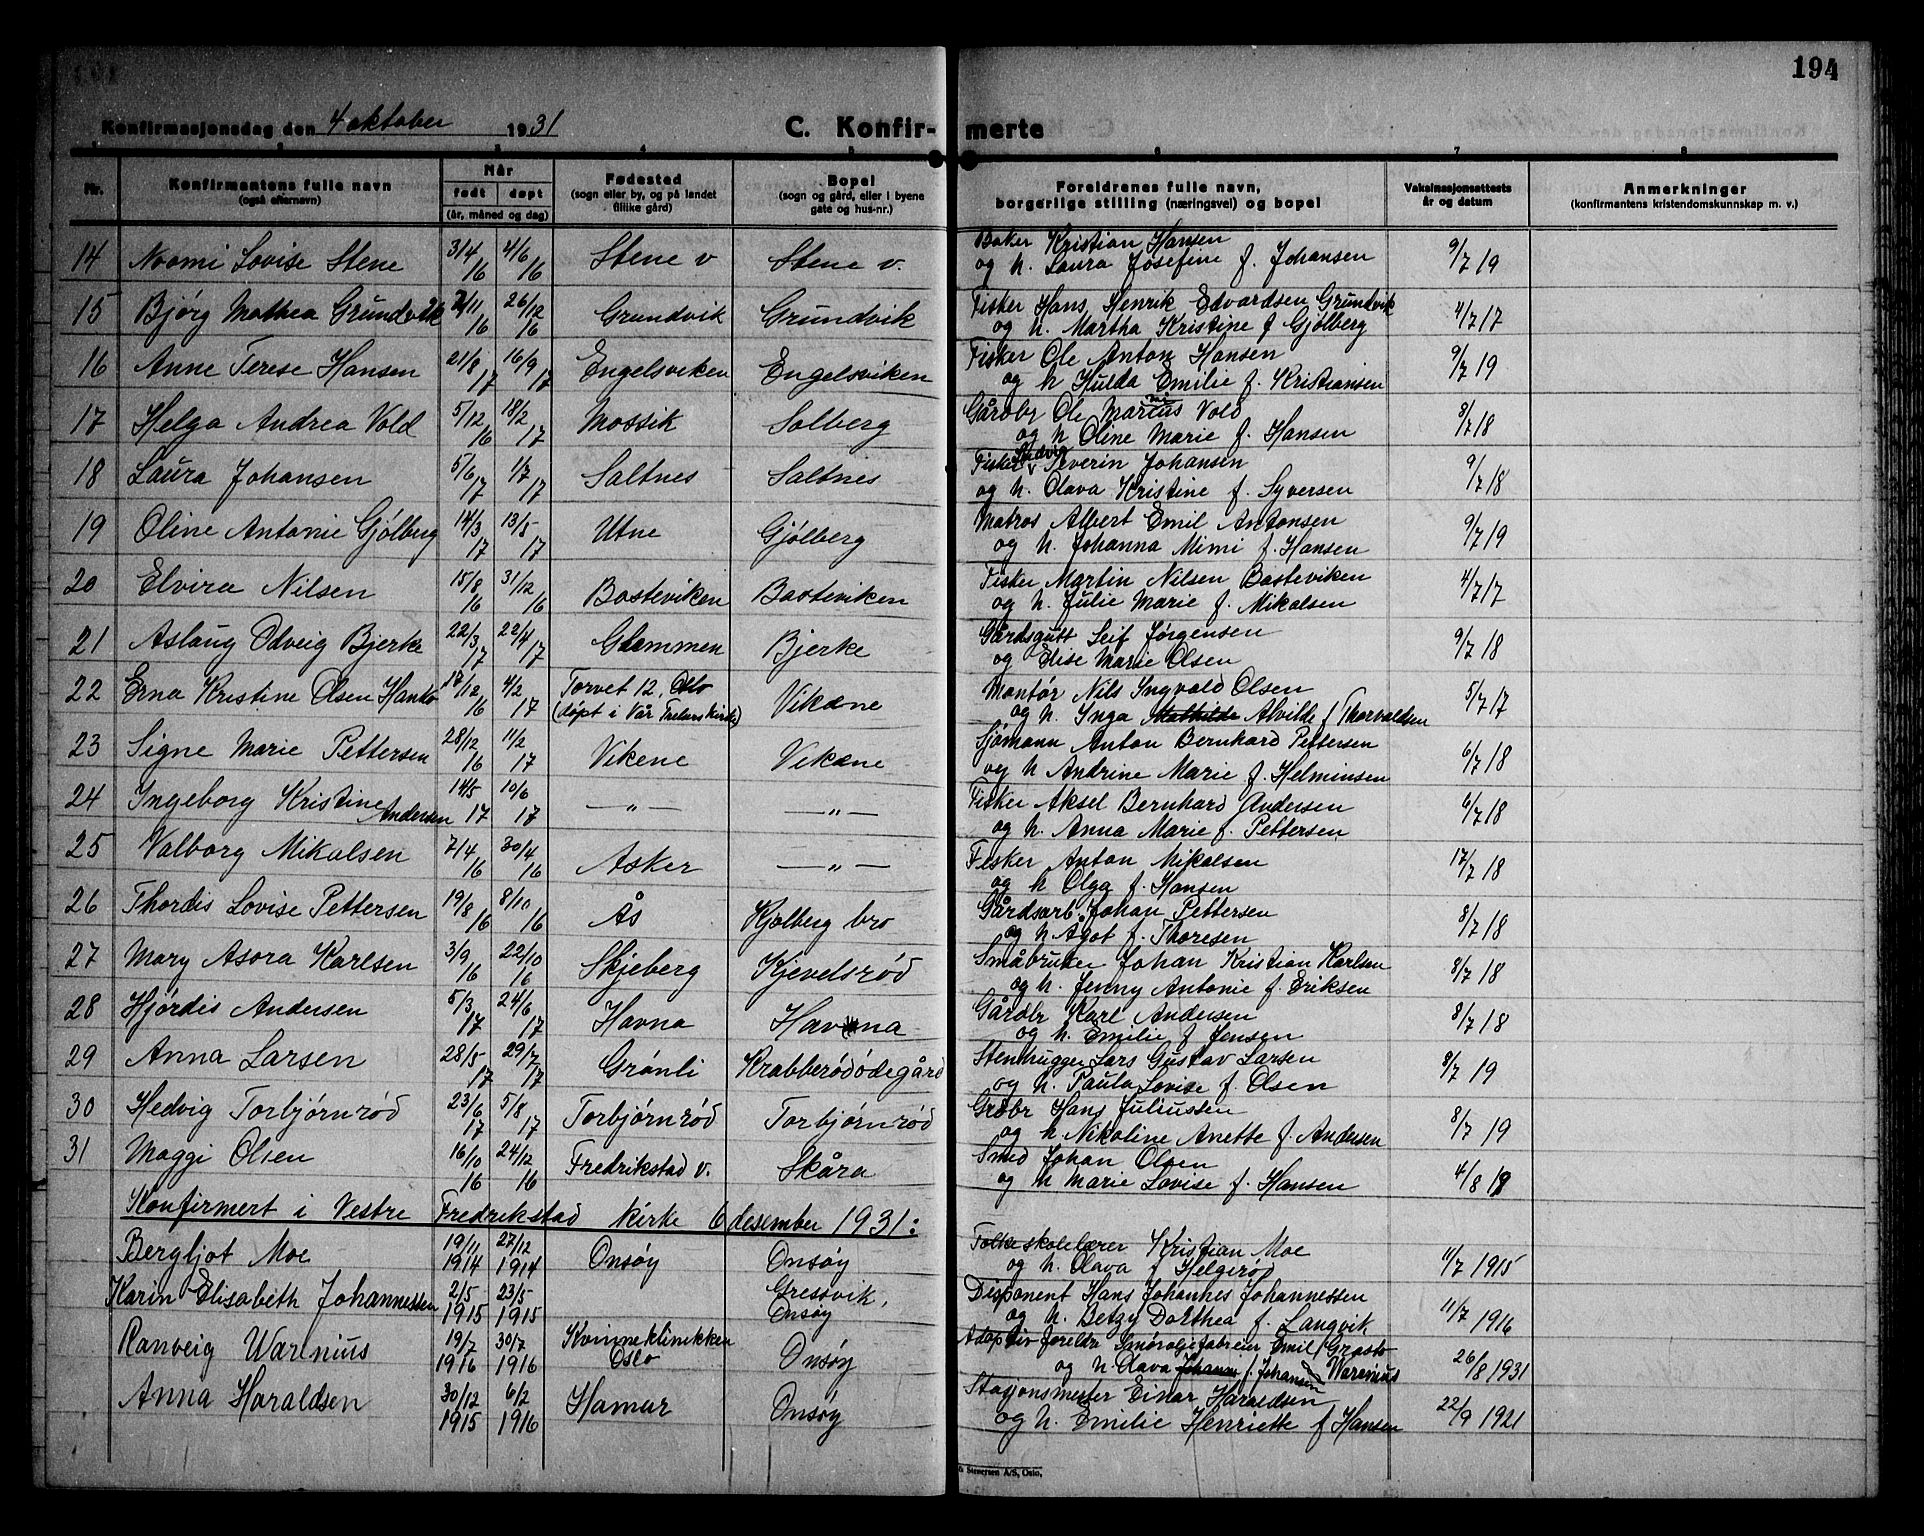 194
Konfirmasjonsdag den 4 oktober 1931
C. Konfir- merte
Nr.
Konfirmantens fulle navn
(også efternavn)
Når
født døpt
(år, måned og dag)
Fødested
(sogn eller by, og på landet
tillike gård)
Bopel
(sogn og gård, eller i byene
gate og hus-nr.)
Foreldrenes fulle navn,
borgerlige stilling (næringsvei) og bopel
Vaksinasjonsattests
år og datum
Anmerkninger
(konfirmantens kristendomskunnskap m. v.)
14 Noomi Lovise Stene 3/4 16 4/6 16 Stene v Stene v. Baker Kristian Hansen 9/7 19
og h. Laura Josefine f. Johansen
15 Bjørg Mathea Grundvik 2/11 16 26/12 16 Grundvik Grundvik Fisker Hans Henrik Edvardsen Grundvik 4/7 17
og h. Martha Kristine f Gjølberg
16 Anne Terese Hansen 21/8 17 16/9 17 Engelsviken Engelsviken Fisker Ole Anton Hansen 9/7 19
og h Hulda Emilie f. Kristiansen
17 Helga Andrea Vold 5/12 16 18/2 17 Mossik Solberg Gårdbr Ole Marius Vold 8/7 18
og h Oline Marie f. Hansen
18 Laura Johansen 5/6 17 1/7 17 Saltnes Saltnes Fisker Ludvig Severin Johansen 9/7 18
og h. Olava Kristine f. Syversen
19 Oline Antonie Gjølberg 14/3 17 13/5 17 Utne Gjølberg Matros Albert Emil Antonsen 9/7 19
og h. Johanna Mimi f. Hansen
20 Elvira Nilsen 15/8 16 31/12 16 Basteviken Basteviken Fisker Martin Nilsen Basteviken 4/7 17
og h. Julie Marie f. Mikalsen
21 Aslaug Odveig Bjerke 22/3 17 22/4 17 Glommen Bjerke Gårdsgutt Leif Jørgensen 9/7 18
og Elise Marie Olsen
22 Erna Kristine Olsen 17/12 16 4/2 17 Torvet 12, Oslo Vikane Montør Nils Ingvald Olsen 5/7 17
(døpt i Vår Frelsers Kirke) og h. Inga Mathilde Alvilde f Thorvaldsen
23 Signe Marie Pettersen 28/12 16 11/2 17 Vikene Vikane Sjømann Anton Bernhard Pettersen 6/7 18
og h Andrine Marie f. Helminsen
24 Ingeborg Kristine Andersen 14/5 17 10/6 17 — „ — — „ — Fisker Aksel Bernhard Andersen 6/7 18
og h. Anna Marie f. Pettersen
25 Valborg Mikalsen 7/4 16 30/4 16 Asker — „ — Fisker Anton Mikalsen 17/7 18
og h Olga f. Hansen
26 Thordis Lovise Pettersen 19/8 16 8/10 16 Ås Kjølberg bro Gårdsarb. Johan Pettersen 8/7 18
og h Ågot f. Thoresen
27 Mary Asora Karlsen 3/9 16 22/10 16 Skjeberg Kjevelsrød Småbruker Johan Kristian Karlsen 8/7 18
og h. Jenny Antonie f. Eriksen
28 Hjørdis Andersen 5/3 17 24/6 17 Havna Havna Gårdbr Karl Andersen 8/7 18
og h. Emilie f Jensen
29 Anna Larsen 28/5 17 29/7 17 Grønli Krabberødødegård Stenhugger Lars Gustav Larsen 8/7 19
og h. Paula Lovise f. Olsen
30 Hedvig Torbjørnrød 23/6 17 5/8 17 Torbjørnrød Torbjørnrød Grdbr Hans Juliussen 8/7 19
og h. Nikoline Anette f. Andersen
31 Maggi Olsen 16/10 16 24/12 16 Fredrikstad v. Skåra Smed Johan Olsen 4/8 19
og h Marie Lovise f. Hansen
Konfirmert i Vestre Fredrikstad kirke 6 desember 1931:
Bergljot Moe 19/11 1914 27/12 1914 Onsøy Onsøy Folkeskolelærer Kristian Moe 11/7 1915
og h. Olava f Helgerød
Karin Elisabeth Johannessen 2/5 1915 23/5 1915 Gressvik, Onsøy Disponent Hans Johannes Johannessen 11/7 1916
og h. Betzy Dorthea f. Langvik
Ranveig Warenius 19/7 1916 30/7 1916 Kvinneklinikken Oslo Onsøy Adoptivforeldre Smøroljefabreier Emil 26/8 1931
og h. Olava f. Johansen Warenius
Anna Haraldsen 30/12 1915 6/2 1916 Hamar Onsøy Stasjonsmester Einar Haraldsen 22/9 1921
og h. Emilie Henriette f Hansen
Stenersen A/S, Oslo.